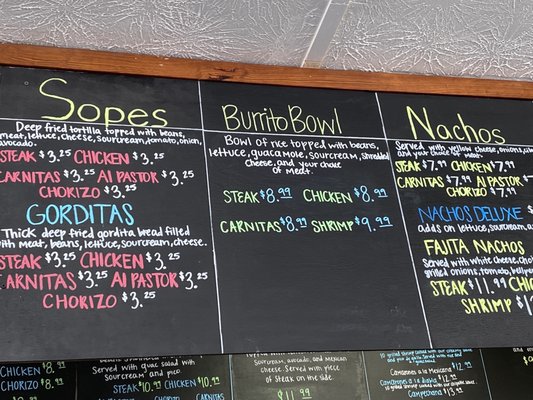 Sopes
Deep fried tortilla topped with beans,
meat, lettuce, cheese, sourcream, tomato, onion,
avocado.
STEAK $3.25 CHICKEN $3.25
CARNITAS $3.25 Al PASTOR $3.25
CHORIZO $3.25
GORDITAS
Thick deep fried gordita bread filled
with meat, beans, lettuce, sourcream, cheese.
STEAK $3.25 CHICKEN $3.25
CARNITAS $3.25 Al PASTOR $3.25
CHORIZO $3.25
Burrito Bowl
Bowl of rice topped with beans,
lettuce, guacamole, sourcream, shredded
cheese, and your choice
of meat.
STEAK $8.99 CHICKEN $8.99
CARNITAS $8.99 SHRIMP $9.99
Nachos
Served with yellow cheese, onions,
and your choice of meat.
STEAK $7.99 CHICKEN $7.99
CARNITAS $7.99 Al PASTOR $7.99
CHORIZO $7.99
NACHOS DELUXE
adds on lettuce, sourcream,
FAJITA NACHOS
Served with white cheese,
grilled onions, tomato,
STEAK $11.99
SHRIMP $
CHICKEN 8.99
CHORIZO $8.99
Served with guac salad with
sourcream and pico.
STEAK $10.99 CHICKEN $10.99
CARNITAS
sourcream, avocado, and mexican
cheese. Served with piece
of Steak on the side.
$11.99
Camarones a la Mexicana $12.99
Camarones a la
Campechana $15.99